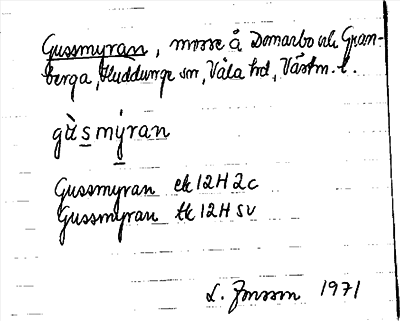 Gussmyran, mosse å Domarbo och Gran-
berga, Huddunge sn, Våla hd, Västm. l.
gùsmýran
Gussmyran ek 12H2c
Gussmyran tk 12H SV
L. Jonsson 1971